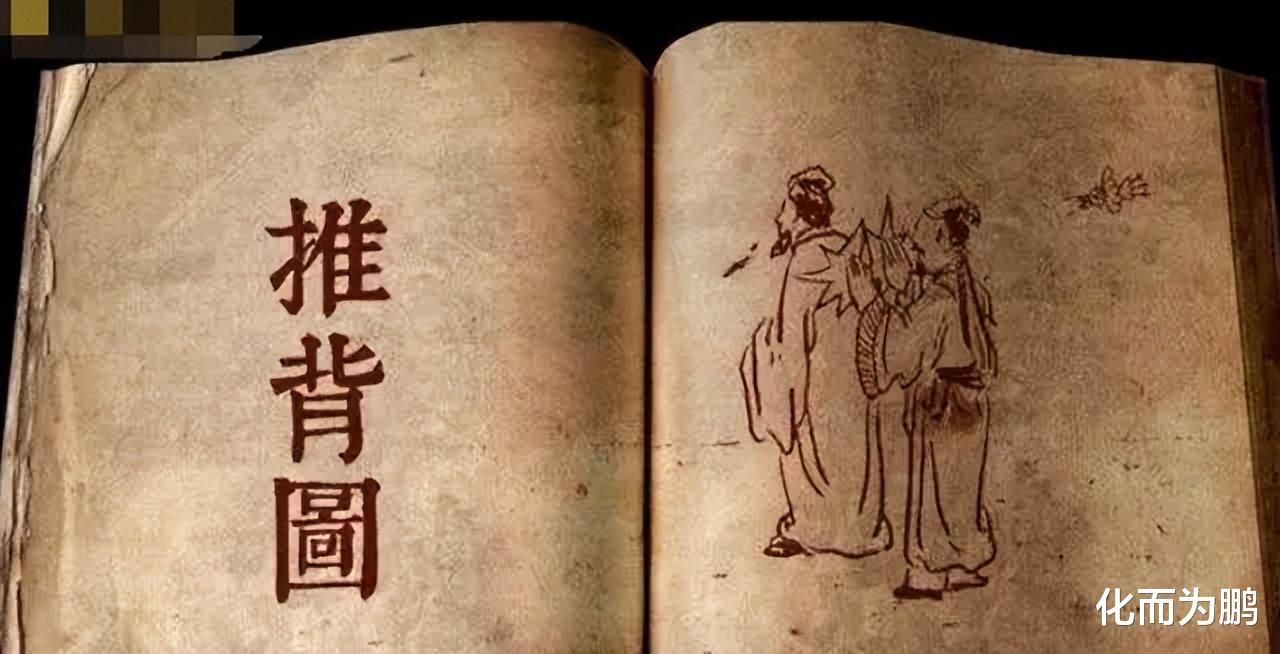 推背圖
化而为鹏